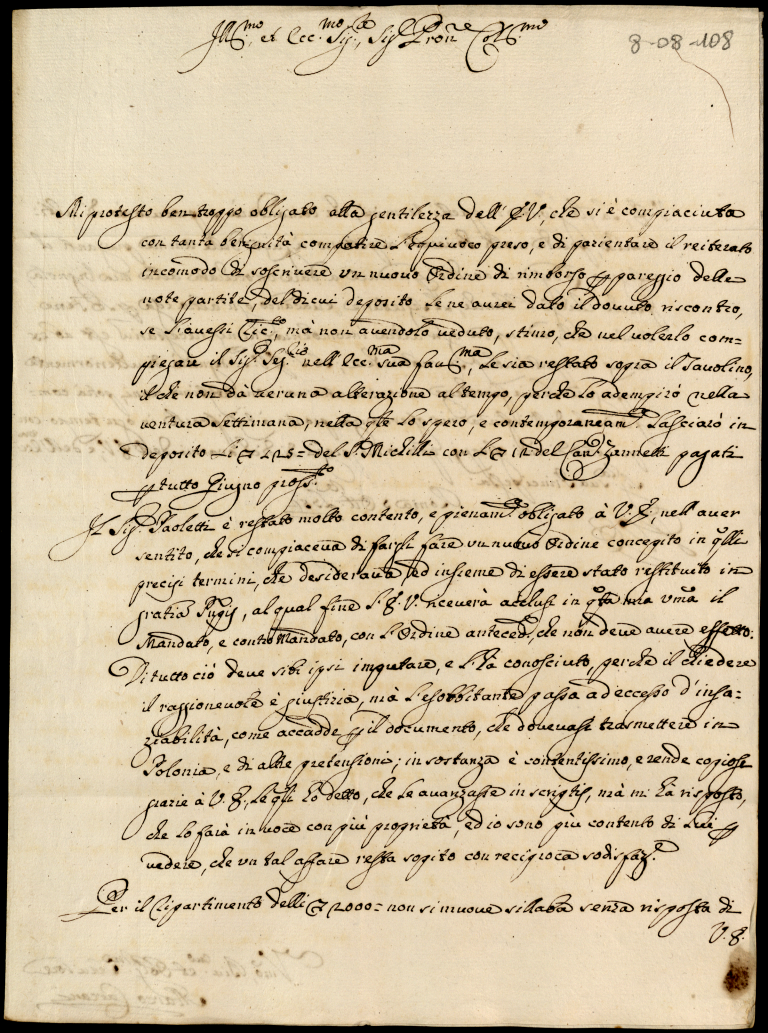 Ill.mo, et Ecc.mo Sig.r, Sig.r Pron. Col.mo
8-08-108
Mi protesto ben troppo obligato alla gentilezza dell' E.V., che si è compiaciuta
con tanta benignità compatire l'equivoco preso, e di pazientare il reiterato
incomodo di soscrivere un nuovo Ordine di rimborso p pareggio delle
note partite, del di cui deposito le ne aurei dato il dovuto riscontro,
se l'avessi, mà non avendolo veduto, stimo, che nel volerlo com-
piegare il Sig.r Seg.rio nell' Ecc.ma sua, le sia restato sopra il Tavolino,
il che non dà veruna alterazione al tempo, perche lo adempirò nella
ventura Settimana, nella qle lo spero, e contemporaneam.e lasciarò in
deposito li 425= del S.r Michilli con 12 del Can.co Zannetti pagati
p tutto Giugno pross.to
Il Sig.r Paoletti è restato molto contento, e pienam.e obligato à V.E., nell' aver
sentito, che si compiaceva di farsi fare un nuovo Ordine concepito in qlli
precisi termini, che desiderava, ed insieme di essere stato restituito in
gratia, al qual fine l'E.V. riceverà acclusi in qta mia uma il
Mandato, e contro Mandato, con l'Ordine anteced.e, che non deve avere effetto:
Di tutto ciò deve sibi ipsi imputare, e l'hà conosciuto, perche il chiedere
il raggionevole è giustizia, mà l'esorbitante passa ad eccesso d'insa-
ziabilità, come accadde p il documento, che dovevasi trasmettere in
Polonia, e di altre pretensioni; in sostanza è contentissimo, e rende copiose
grazie à V.E., le qli hò detto, che le avanzasse in scriptis, mà mi hà risposto,
che lo farà in voce con più proprietà, ed io sono più contento di lui p
vedere, che un tal affare resta sopito con reciproca sodisfaz.e
Per il Ripartimento delli 2000= non si muove sillaba senza risposta di
V.E.